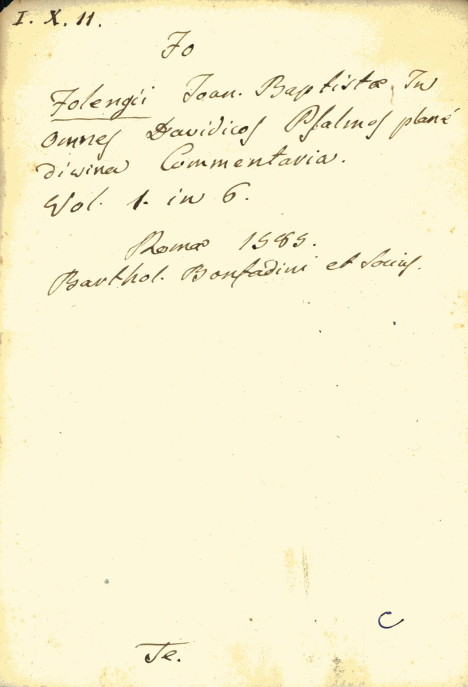 I. X. 11.
Fo
Folengii Joan. Baptistæ In
omnes Davidicos Psalmos planè
divina Commentaria.
Vol. 1. in 6.
Romæ 1585.
Barthol. Bonfadini et Socius.
C
Te.